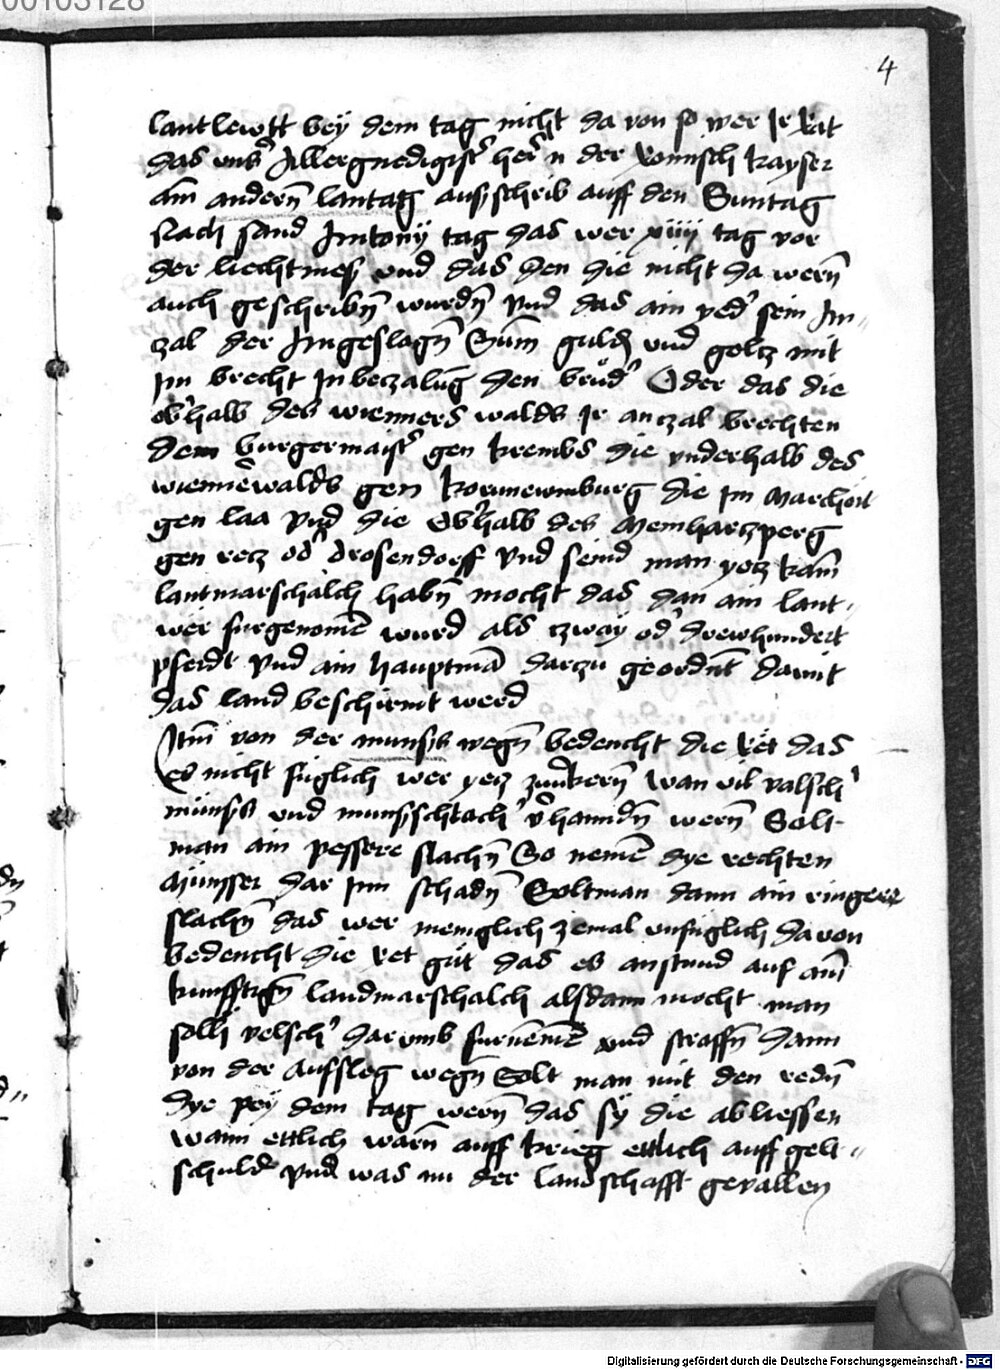 00103128
4
lantlewtt bey dem tag nicht da von so wer Ir Rat
das uns' Allergnedigist' her'n der Romisch kayser
ain andern lantag ausschrib auff den Suntag
Nach sand Antony tag das wer xiiij tag vor
der liechtmess und das den die nicht da wern
auch geschribn wurdn vnd das ain yed' sein An„
zal der Angeslagn Sum guld und geltz mit
Im brecht In beczalūg den brud' Oder das die
ob'halb des wienners walds Ir anczal brechten
dem burgermaist' gen krembs die vnderhalb des
wienn'walds gen kornnewnburg die Im Marchvelt
gen laa vnd die Ob'halb des Meinhartzperg
gen retz od' drosendorff vnd seind man yetz kain
lantmarschalch habn mocht das dan ain lant„
wer furgenomē wurd als tzway od' drewhundert
pferdt vnd ain hauptmā darzu geordnt damit
das land beschirmt werd
Itm von der munss wegn bedencht die Ret das
es nicht fuglich wer yetz zuuerkern wan vil valsch'
munss und munssschlach' v'hanndn wern Solt
man ain pessere slachn So nemē dye rechten
Munsser dar Inn schadn Soltman dann ain ringere
slachn das wer meniglich zemal unfuglich davon
bedencht die ret gut das es anstund auf ain
kunfftign landmarschalch alsdann mocht man
solh velsch' darumb furnemē und straffn dann
von der Aufsleg wegn Solt man mit den redn
dye pey dem tag wern das sy die abliessen
wann ettlich warn auff krieg ettlich auff gelt„
schuld vnd was nu der landschafft gevallen
Digitalisierung gefördert durch die Deutsche Forschungsgemeinschaft - DFG